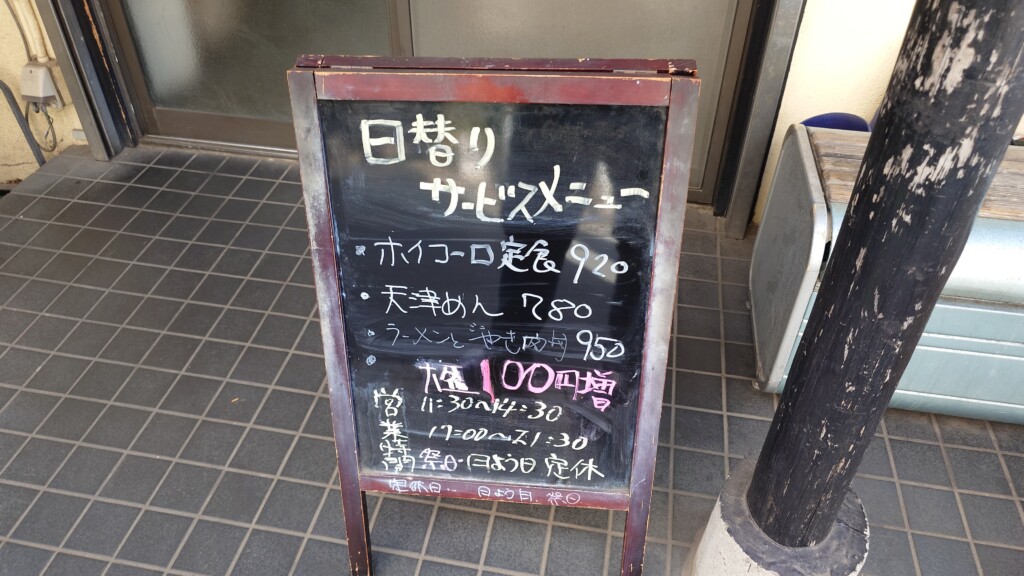 日替り
サービスメニュー
・ホイコーロ定食 920
・天津めん 780
・ラーメンと 950
大盛 100円増
営業時間 11:30〜14:30
17:00〜21:30
祭日・日よう日 定休
定休日 日よう日、祭日